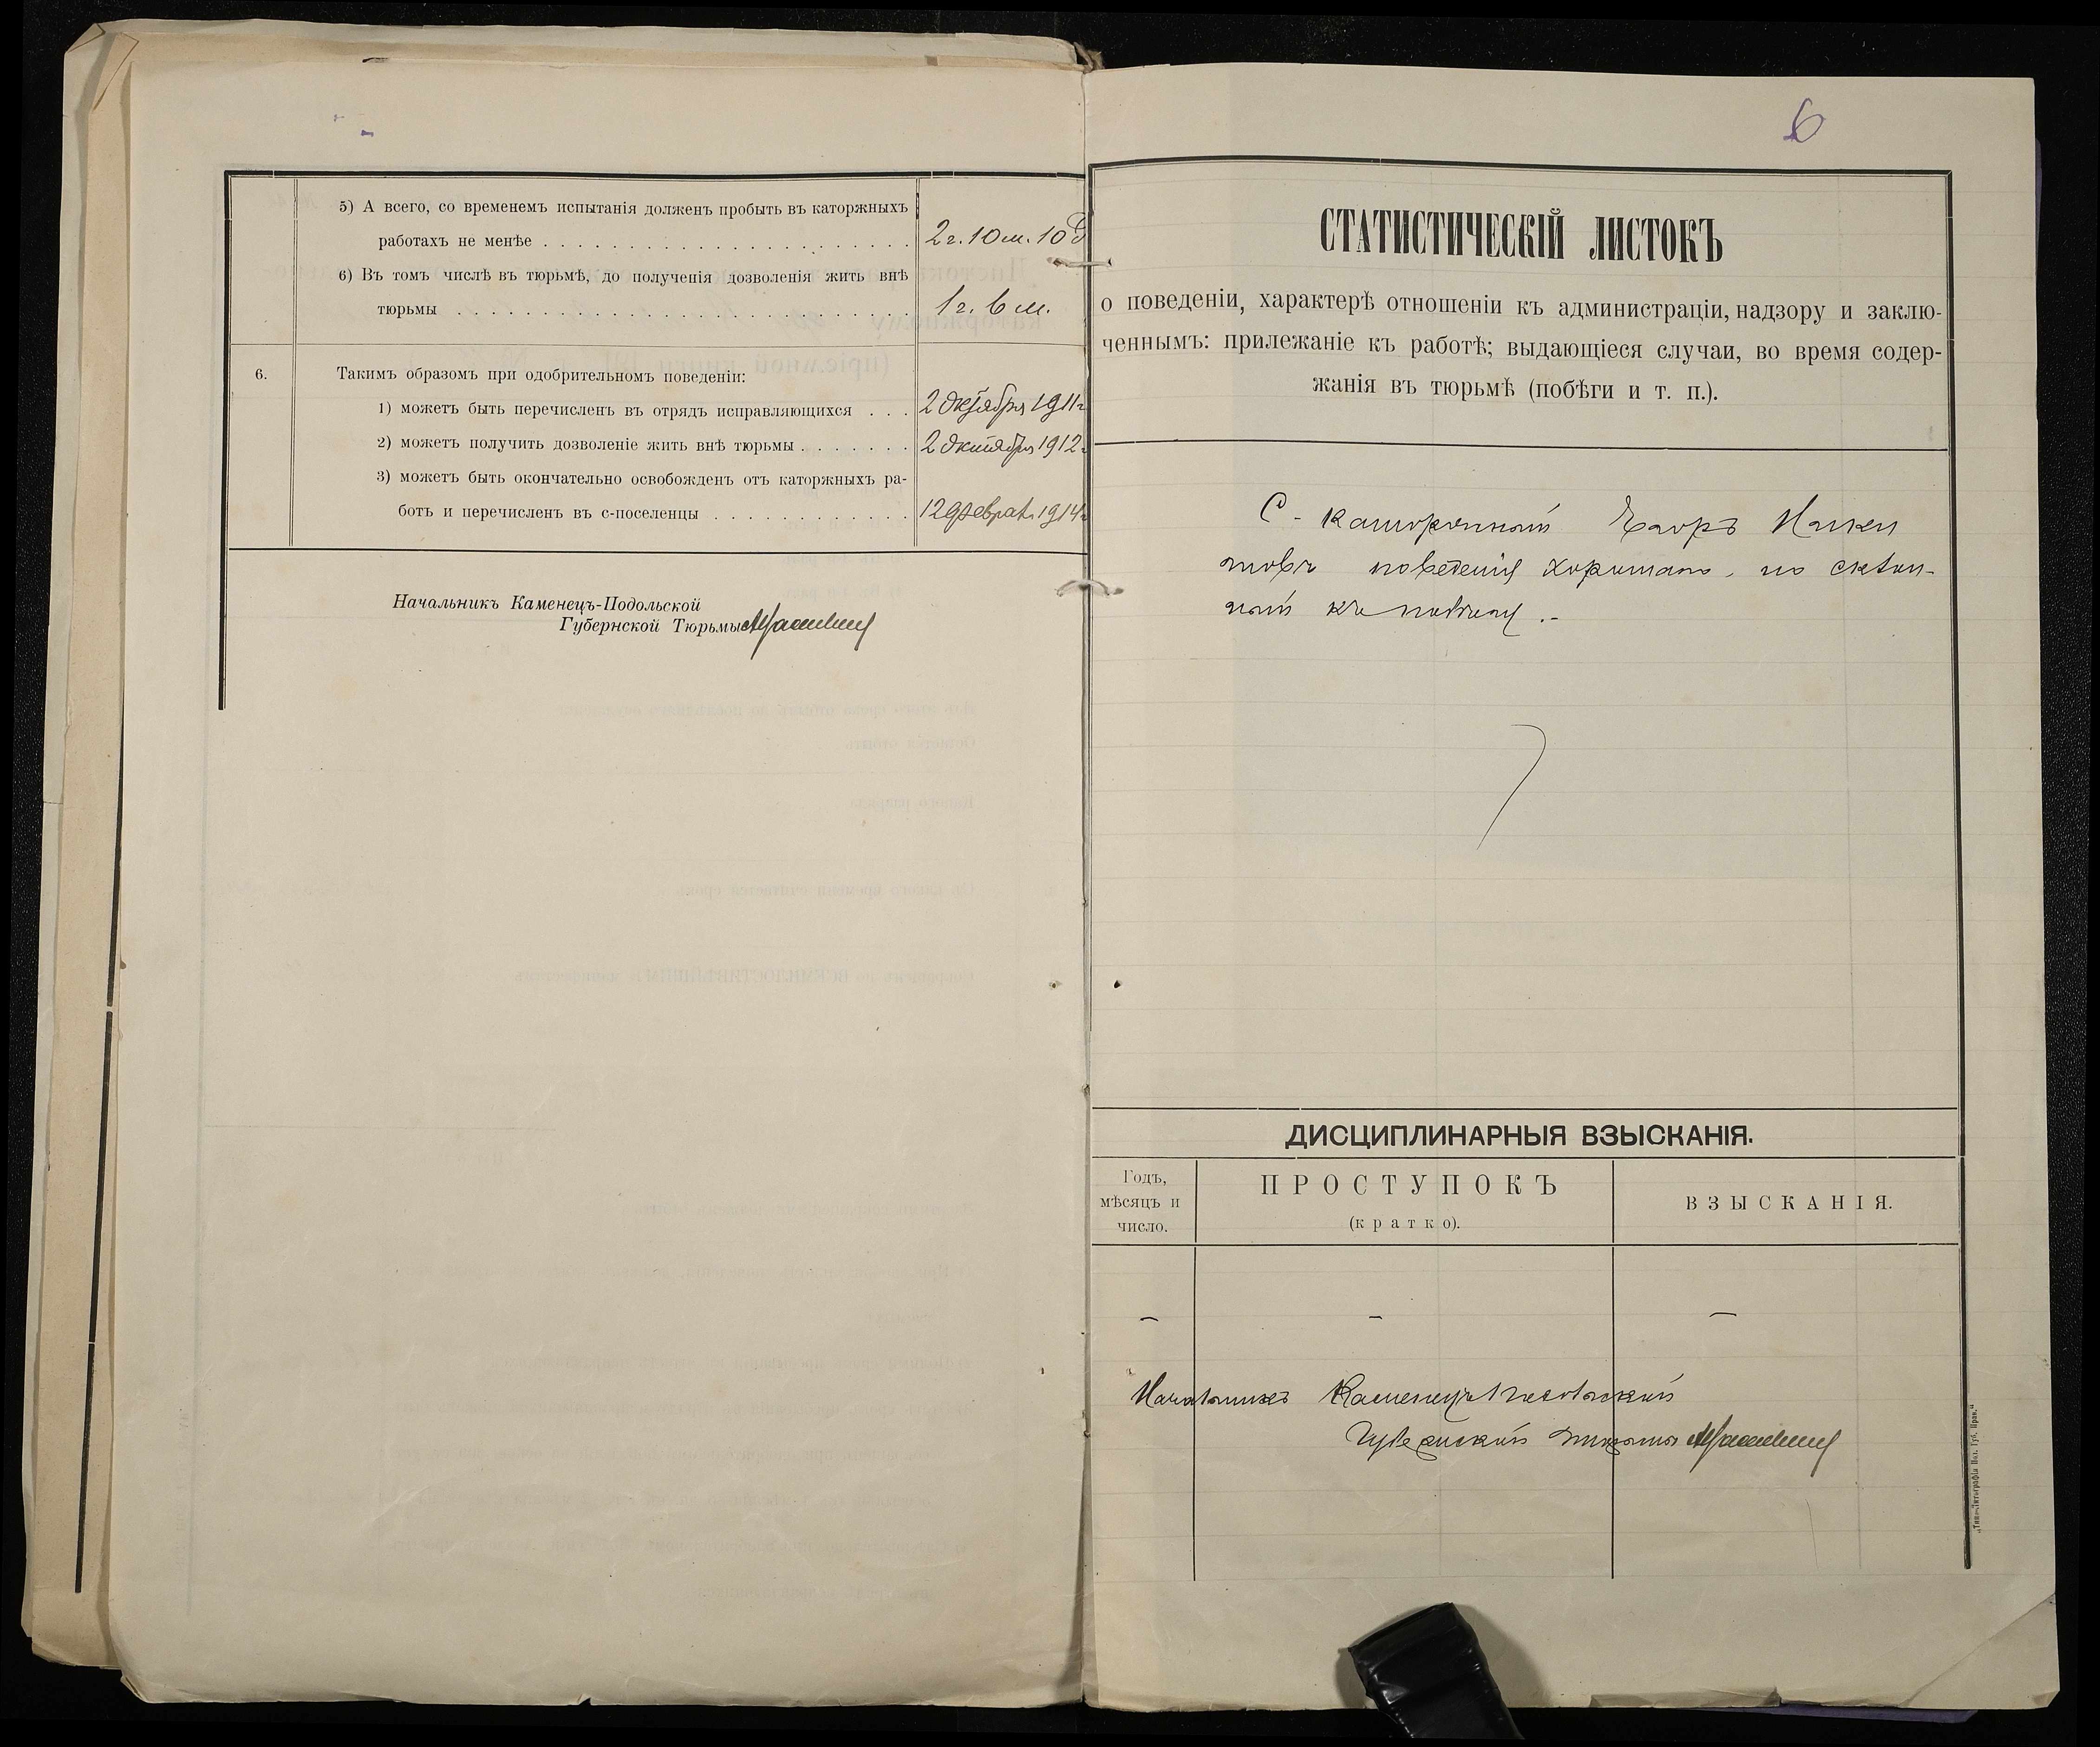 5) А всего, со временемъ испытанія долженъ пробыть въ каторжныхъ
работахъ не менѣе . . . . . . . . . . . . . . . . . . . . . . 2 г. 10 м. 10 д
6) Въ томъ числѣ въ тюрьмѣ, до полученія дозволенія жить внѣ
тюрьмы . . . . . . . . . . . . . . . . . . . . . . . . . . . 1 г. 6 м.
6. Такимъ образомъ при одобрительномъ поведеніи:
1) можетъ быть перечисленъ въ отрядъ исправляющихся . . . 2 Октября 1911 г
2) можетъ получить дозволеніе жить внѣ тюрьмы . . . . . . . 2 Октября 1912 г
3) можетъ быть окончательно освобожденъ отъ каторжныхъ ра-
ботъ и перечисленъ въ с-поселенцы . . . . . . . . . . . . 12 Феврал. 1914 г
Начальникъ Каменецъ-Подольской
Губернской Тюрьмы
6
СТАТИСТИЧЕСКІЙ ЛИСТОКЪ
о поведеніи, характерѣ отношеніи къ администраціи, надзору и заклю-
ченнымъ: прилежаніе къ работѣ; выдающіеся случаи, во время содер-
жанія въ тюрьмѣ (побѣги и т. п.).
С-каторжный Егоръ Ники
товъ поведенія хорошаго, но склон-
ный къ побѣгу .-
ДИСЦИПЛИНАРНЫЯ ВЗЫСКАНІЯ.
Годъ,
мѣсяцъ и
число.
ПРОСТУПОКЪ
(кратко).
ВЗЫСКАНІЯ.
– – –
Начальникъ Каменецъ-Подольской
Губернской тюрьмы
„Типо-Литографія Под. Губ. Прав."